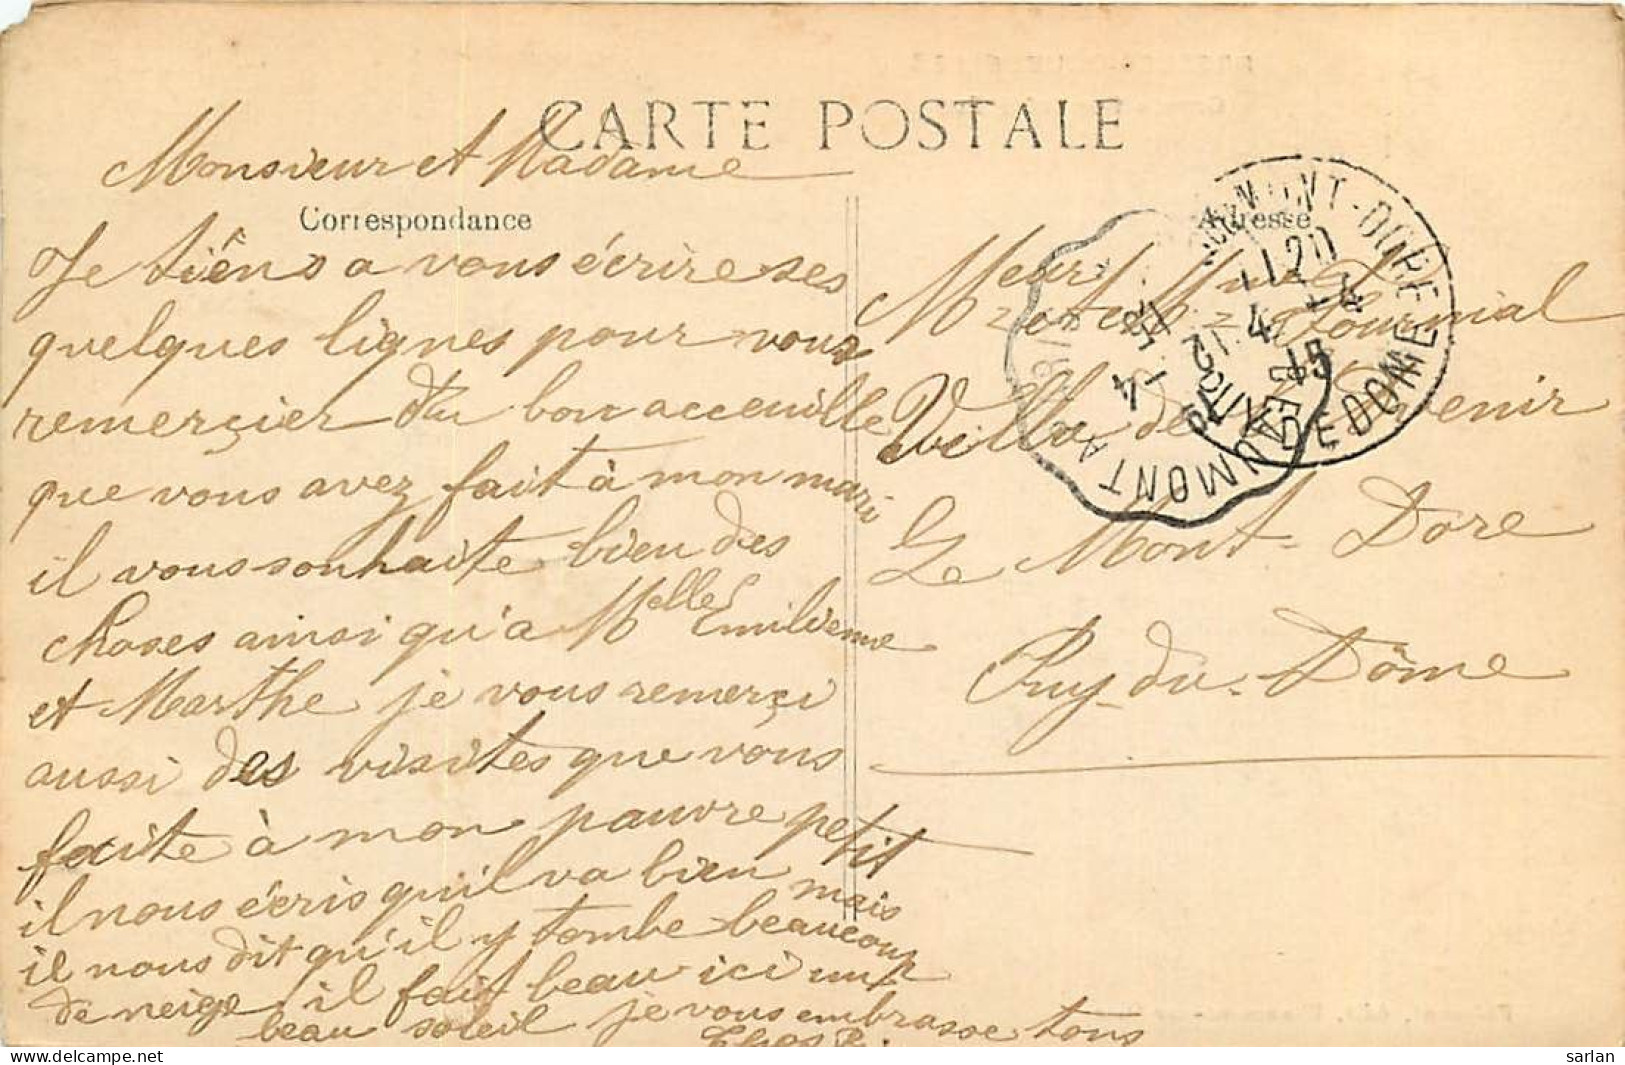 CARTE POSTALE
Monsieur et Madame
Correspondance
Je tiens a vous écrire ses
quelques lignes pour vous
remerçier du bon acceuille
que vous avez fait à mon mari
il vous souhaite bien des
choses ainsi qu'a Melle Emilienne
et Marthe je vous remerçi
aussi des visites que vous
faite à mon pauvre petit
il nous écris qu'il va bien mais
il nous dit qu'il y tombe beaucoup
de neige il fait beau ici un
beau soleil je vous embrasse tous
Adresse
Fournial
Ville de l'Avenir
Le Mont-Dore
Puy-du-Dôme
MONT-DORE
DE DOME
4
15
15
4
sarlan